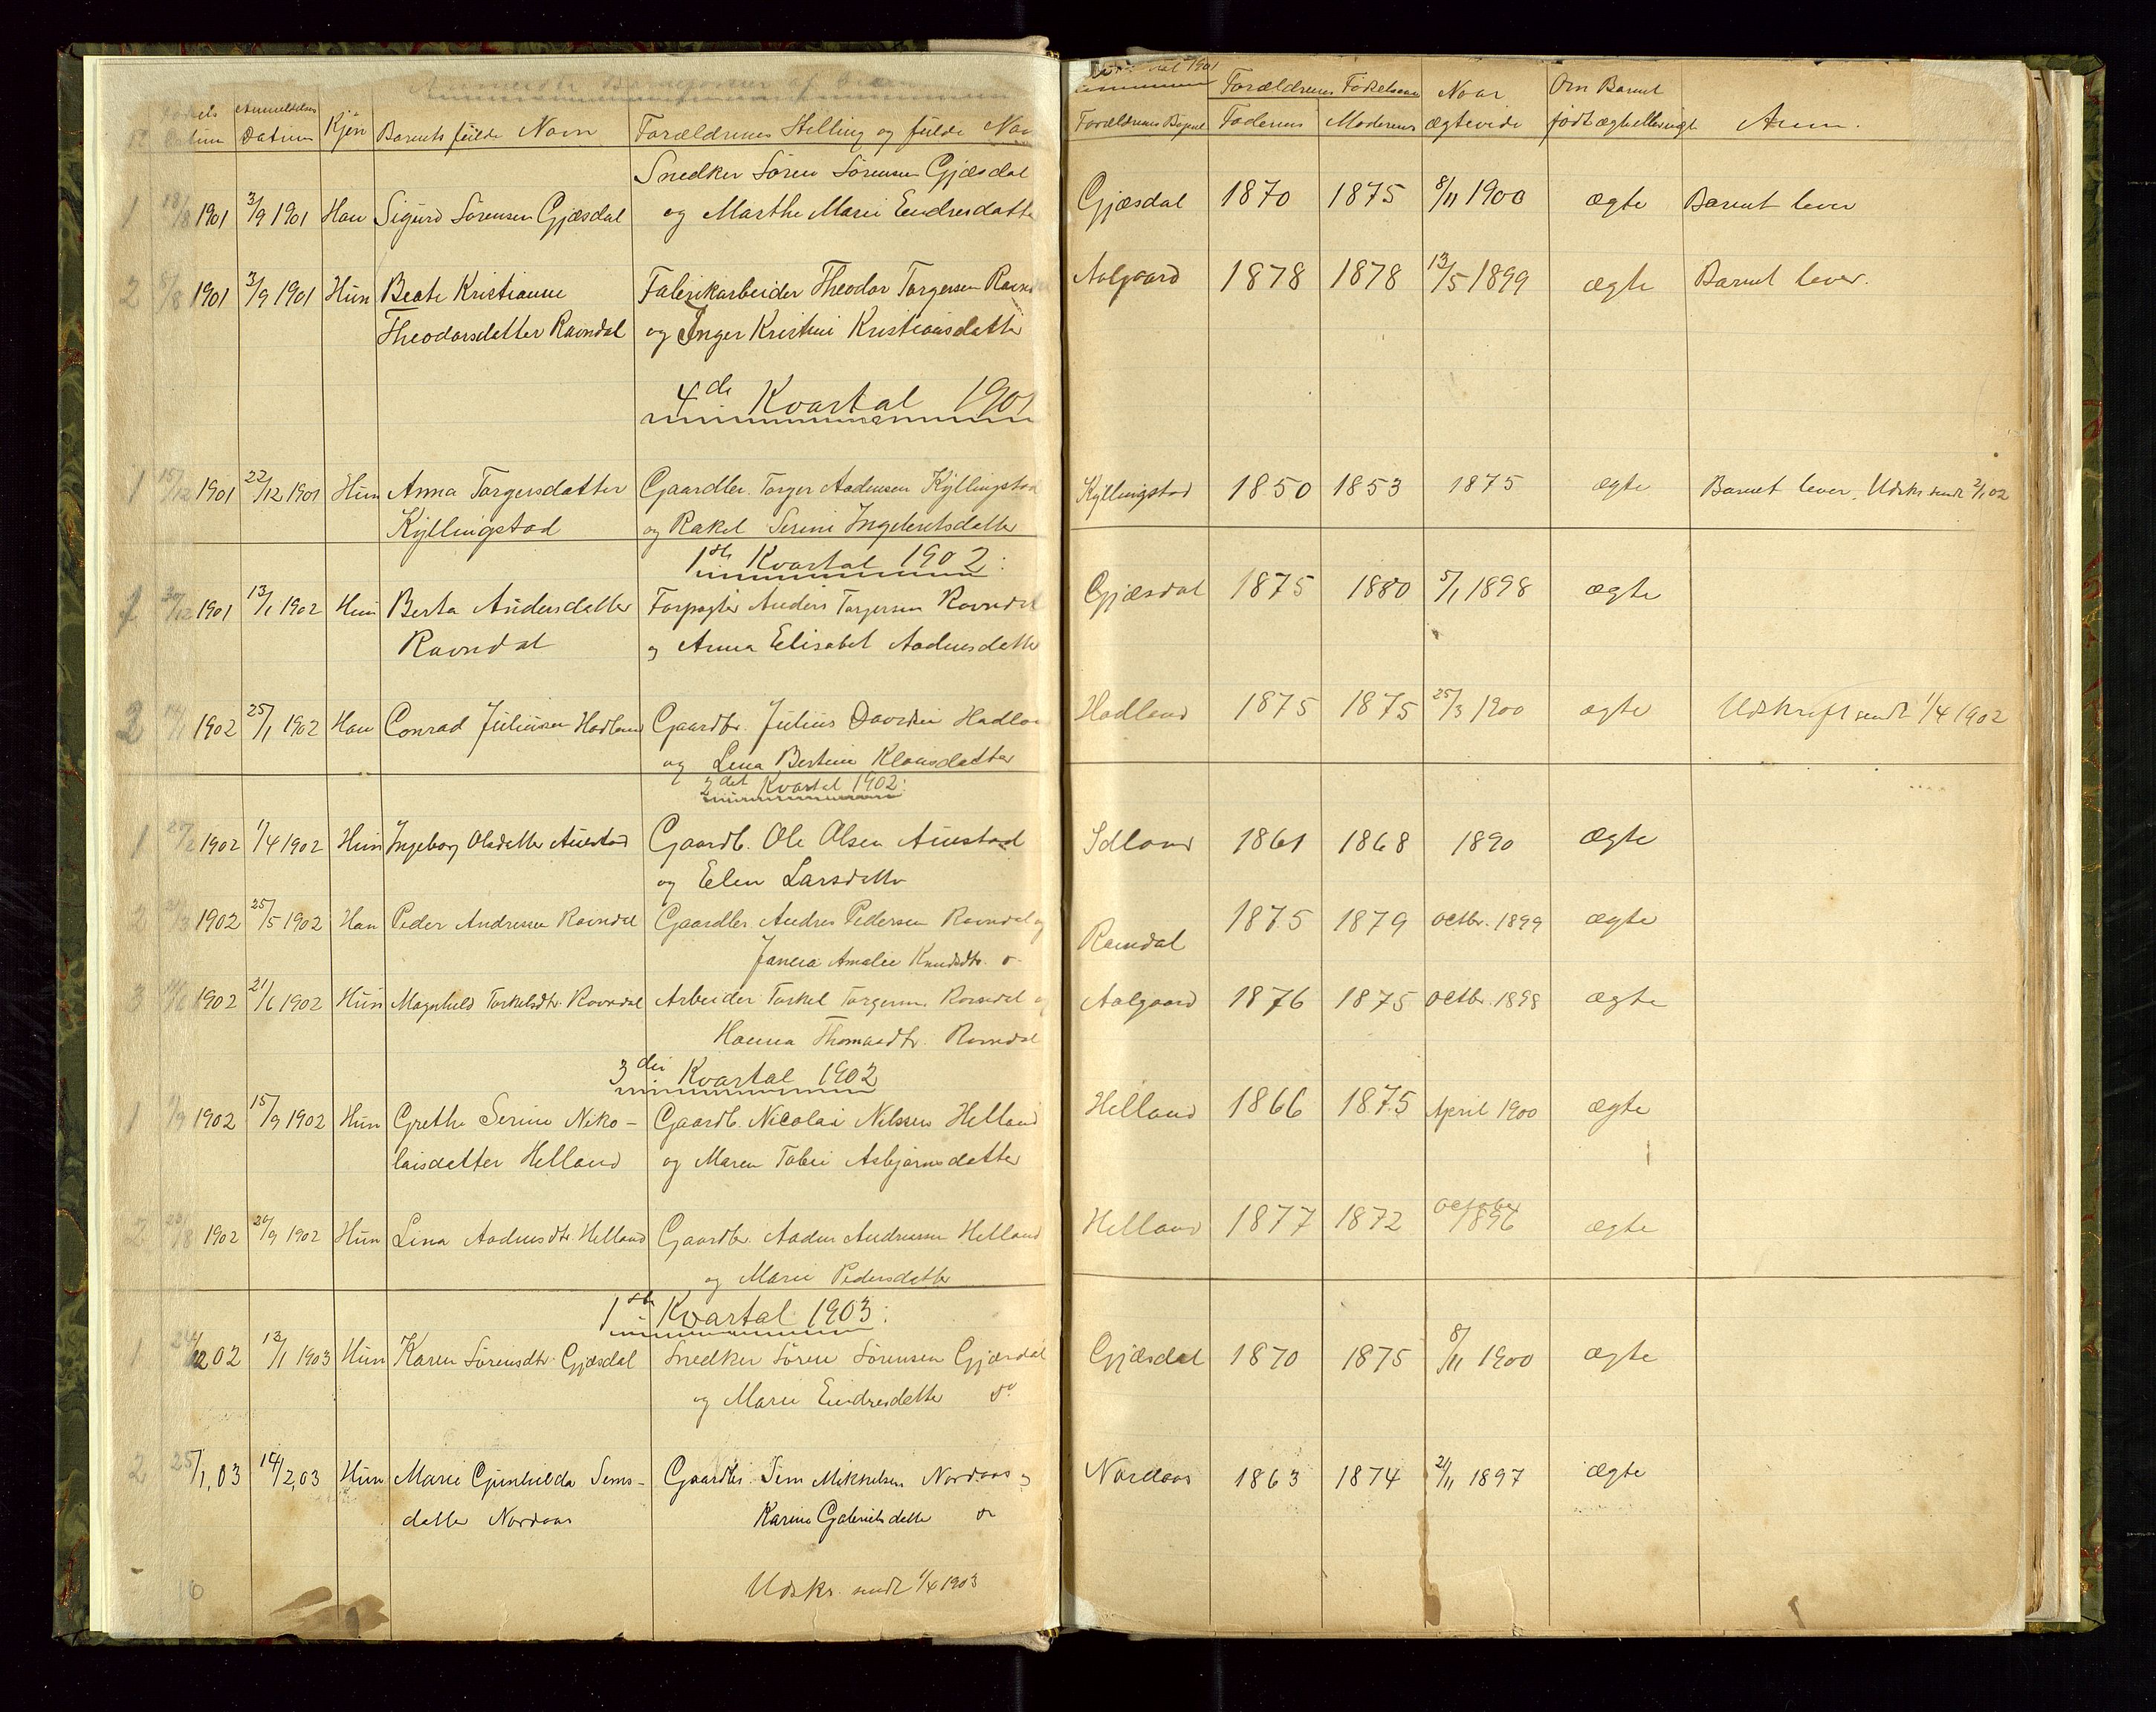 Datum Datum Kjön Barnets fülde Navn Forældrenes Stilling og fülde Nav
Snedker Sören Sörensen Gjæsdal
1 18/8 1901 3/9 1901 Han Sigurd Sörensen Gjæsdal og Marthe Marie Endresdatter
2 8/8 1901 3/9 1901 Hun Beate Kristianne Fabrikarbeider Theodor Torgersen Ravndal
Theodorsdatter Ravndal og Inger Kristine Kristiansdatter
4de Kvartal 1901
1 15/12 1901 22/12 1901 Hun Anna Torgersdatter Gaardbr. Torger Aadnesen Kyllingstad
Kyllingstad og Rakel Serine Ingebretsdatter
1ste Kvartal 1902:
1 30/12 1901 13/1 1902 Hun Berta Andersdatter Forpagter Anders Torgersen Ravndal
Ravndal og Anna Elisabet Aadnesdatter
2 14/1 1902 25/1 1902 Han Conrad Juliusen Hadland Gaardbr. Julius Davidsen Hadland
og Lena Bertine Klausdatter
2det Kvartal 1902:
1 27/2 1902 1/4 1902 Hun Ingeborg Olsdatter Auestad Gaardb. Ole Olsen Auestad
og Elen Larsdatter
2 1902 25/5 1902 Han Peder Andresen Ravndal Gaardbr Andres Pedersen Ravndal og
Janna Amalie Knudsdtr. do
3 1902 21/6 1902 Hun Magnhild Torkelsdtr. Ravndal Arbeider Torkel Torgersen Ravndal og
Hanna Thomasdtr. Ravndal
3die Kvartal 1902
1 1902 15/9 1902 Hun Grethe Serine Niko- Gaardb. Nicolai Nilssen Helland
laisdatter Helland og Maren Tobie Asbjørnsdatter
2 1902 29/9 1902 Hun Lina Aadnesdtr. Helland Gaardbr. Aadne Andreassen Helland
og Marie Pedersdatter
1ste Kvartal 1903:
1 24/12 02 13/1 1903 Hun Karen Sörensdtr. Gjæsdal Snedker Sören Sörensen Gjæsdal
og Marie Endresdatter do
2 25/1,03 14/2,03 Hun Marie Gunhilda Sems- Gaardbr. Sem Mikkelsen Nordaas og
datter Nordaas Karine Gabrielsdatter do
Udskr. sendt 1/4 1903
Forældrenes Födselsaar Naar Om Barnet
Forældrenes Bopæl Faderens Moderens ægteviede födt ægte eller uægte Anm.
Gjæsdal 1870 1875 8/11 1900 ægte Barnet lever
Aalgaard 1878 1878 13/5 1899 ægte Barnet lever.
Kyllingstad 1850 1853 1875 ægte Barnet lever. Udskr. sendt 2/1 02
Gjæsdal 1875 1880 5/1 1898 ægte
Hadland 1875 1875 25/3 1900 ægte Udskrift sendt 1/4 1902
Idland 1861 1868 1890 ægte
Ravndal 1875 1879 octbr. 1899 ægte
Aalgaard 1876 1875 octbr. 1898 ægte
Helland 1866 1875 April 1900 ægte
Helland 1877 1872 october 1896 ægte
Gjæsdal 1870 1875 8/11 1900 ægte
Nordaas 1863 1874 21/11 1897 ægte